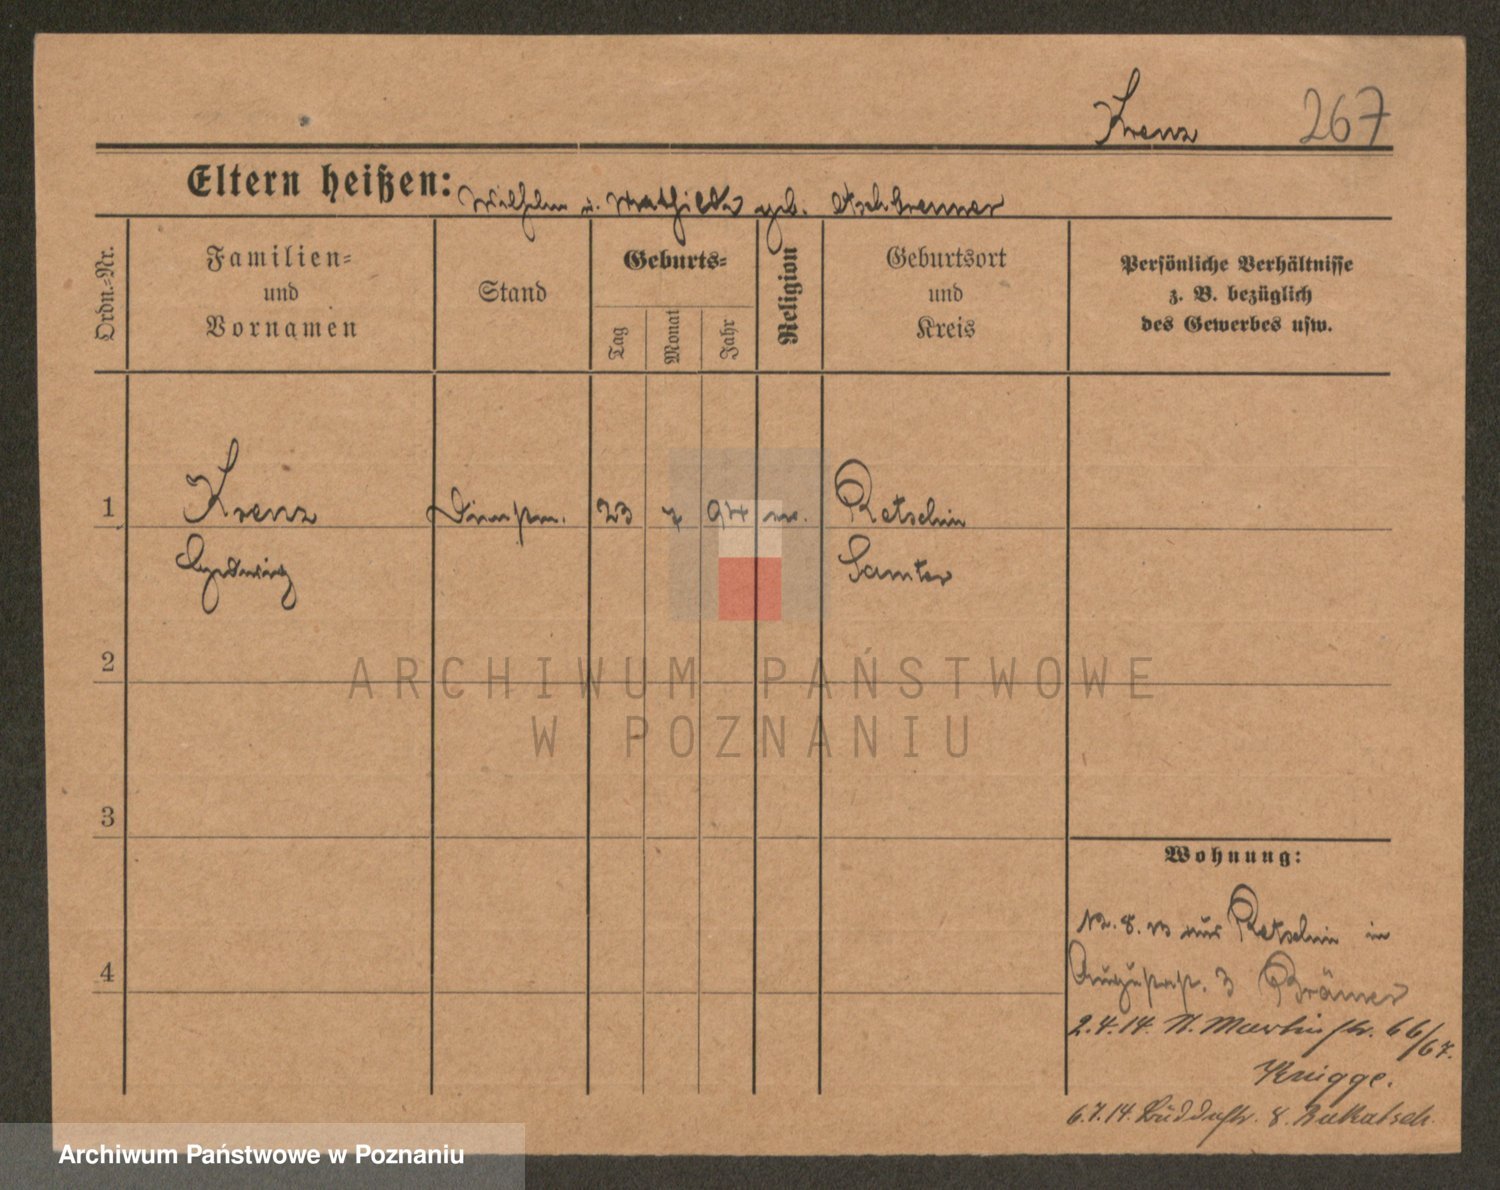 Krenz 267
Eltern heißen: Wilhelm u. Mathilde geb.
Ordn.-Nr.
Familien-
und
Vornamen
Stand
Geburts-
Tag
Monat
Jahr
Religion
Geburtsort
und
Kreis
Persönliche Verhältnisse
z. B. bezüglich
des Gewerbes usw.
1 Krenz 23 7 94 ev. Retschin
Samter
2
3
4
Wohnung:
8. 13 aus Retschin in
Augustastr. 3 Brämer
2.4.14. St. Martinstr. 66/67.
Knigge.
6.7.14. 8.
ARCHIWUM PAŃSTWOWE
W POZNANIU
Archiwum Państwowe w Poznaniu